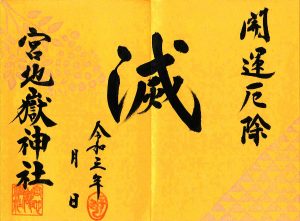 開運厄除
滅
令和三年
月 日
宮地嶽神社